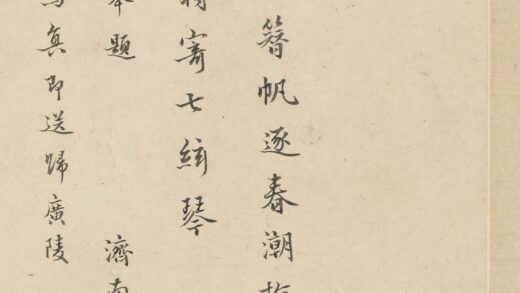 簪帆逐春潮
寄七絃琴
題 濟南
真即送歸廣陵